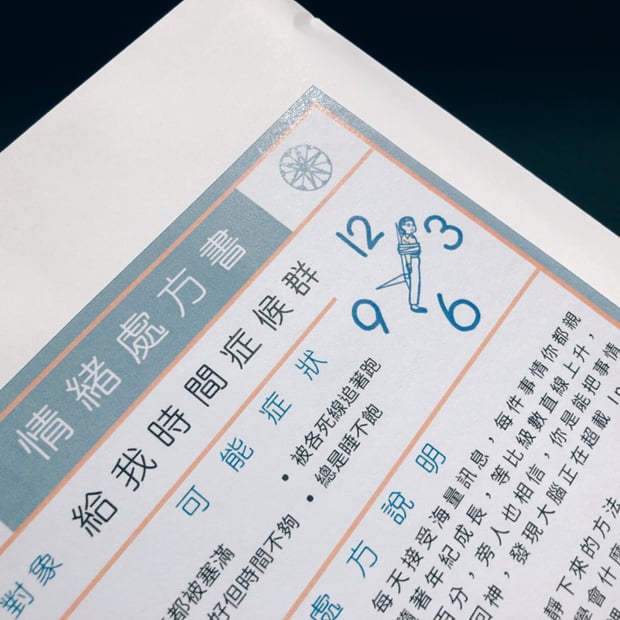 情緒處方書
給我時間症候群
12 3
9 6
可能症狀
• 被各死線追著跑
• 總是睡不飽
對象
都被塞滿
好但時間不夠
處方說明
每天接受海量訊息，每件事情你都親
隨著年紀成長，等比級數直線上升，
百分，旁人也相信，你是能把事情
回神，發現大腦正在超載
靜下來的方法
學會什麼